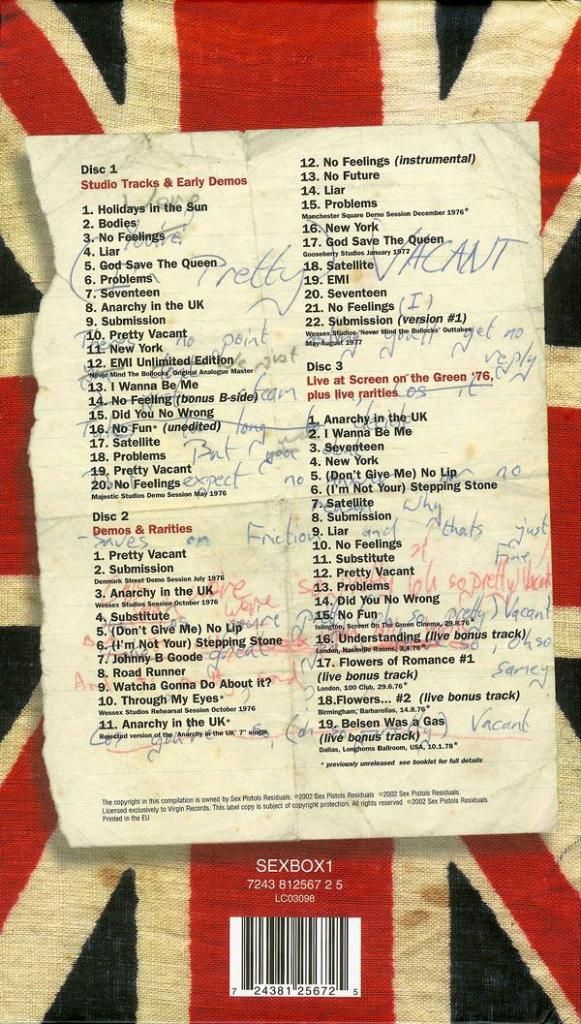 Disc 1
Studio Tracks & Early Demos
1. Holidays in the Sun
2. Bodies
3. No Feelings
4. Liar
5. God Save The Queen
6. Problems
7. Seventeen
8. Anarchy in the UK
9. Submission
10. Pretty Vacant
11. New York
12. EMI Unlimited Edition
Never Mind The Bollocks' Original Analogue Master
13. I Wanna Be Me
14. No Feeling (bonus B-side)
15. Did You No Wrong
16. No Fun* (unedited)
17. Satellite
18. Problems
19. Pretty Vacant
20. No Feelings
Majestic Studios Demo Session May 1976
Disc 2
Demos & Rarities
1. Pretty Vacant
2. Submission
Denmark Street Demo Session July 1976
3. Anarchy in the UK
Wessex Studios Session October 1976
4. Substitute
5. (Don't Give Me) No Lip
6. (I'm Not Your) Stepping Stone
7. Johnny B Goode
8. Road Runner
9. Watcha Gonna Do About it?
10. Through My Eyes*
Wessex Studios Rehearsal Session October 1976
11. Anarchy in the UK*
Rejected version of the 'Anarchy in the UK' 7" single
12. No Feelings (instrumental)
13. No Future
14. Liar
15. Problems
Manchester Square Demo Session December 1976*
16. New York
17. God Save The Queen
Gooseberry Studios January 1977
18. Satellite
19. EMI
20. Seventeen
21. No Feelings
22. Submission (version #1)
Wessex Studios 'Never Mind the Bollocks' Outtakes
May-August 1977
Disc 3
Live at Screen on the Green '76,
plus live rarities
1. Anarchy in the UK
2. I Wanna Be Me
3. Seventeen
4. New York
5. (Don't Give Me) No Lip
6. (I'm Not Your) Stepping Stone
7. Satellite
8. Submission
9. Liar
10. No Feelings
11. Substitute
12. Pretty Vacant
13. Problems
14. Did You No Wrong
15. No Fun
Islington, Screen On The Green Cinema, 29.8.76*
16. Understanding (live bonus track)
London, Nashville Rooms, 3.4.76*
17. Flowers of Romance #1
(live bonus track)
London, 100 Club, 29.6.76*
18.Flowers... #2 (live bonus track)
Birmingham, Barbarellas, 14.8.76*
19. Belsen Was a Gas
(live bonus track)
Dallas, Longhorns Ballroom, USA, 10.1.78*
* previously unreleased see booklet for full details
Pretty VACANT
no point
you'll get no
reply
But
expect no
Why
on Friction and thats just
Fine
oh so pretty Vacant
so pretty) Vacant
so, oh so
samey
Vacant
The copyright in this compilation is owned by Sex Pistols Residuals. ℗2002 Sex Pistols Residuals ©2002 Sex Pistols Residuals.
Licensed exclusively to Virgin Records. This label copy is subject of copyright protection. All rights reserved ©2002 Sex Pistols Residuals
Printed in the EU
SEXBOX1
7243 812567 2 5
LC03098
7 24381 25672 5